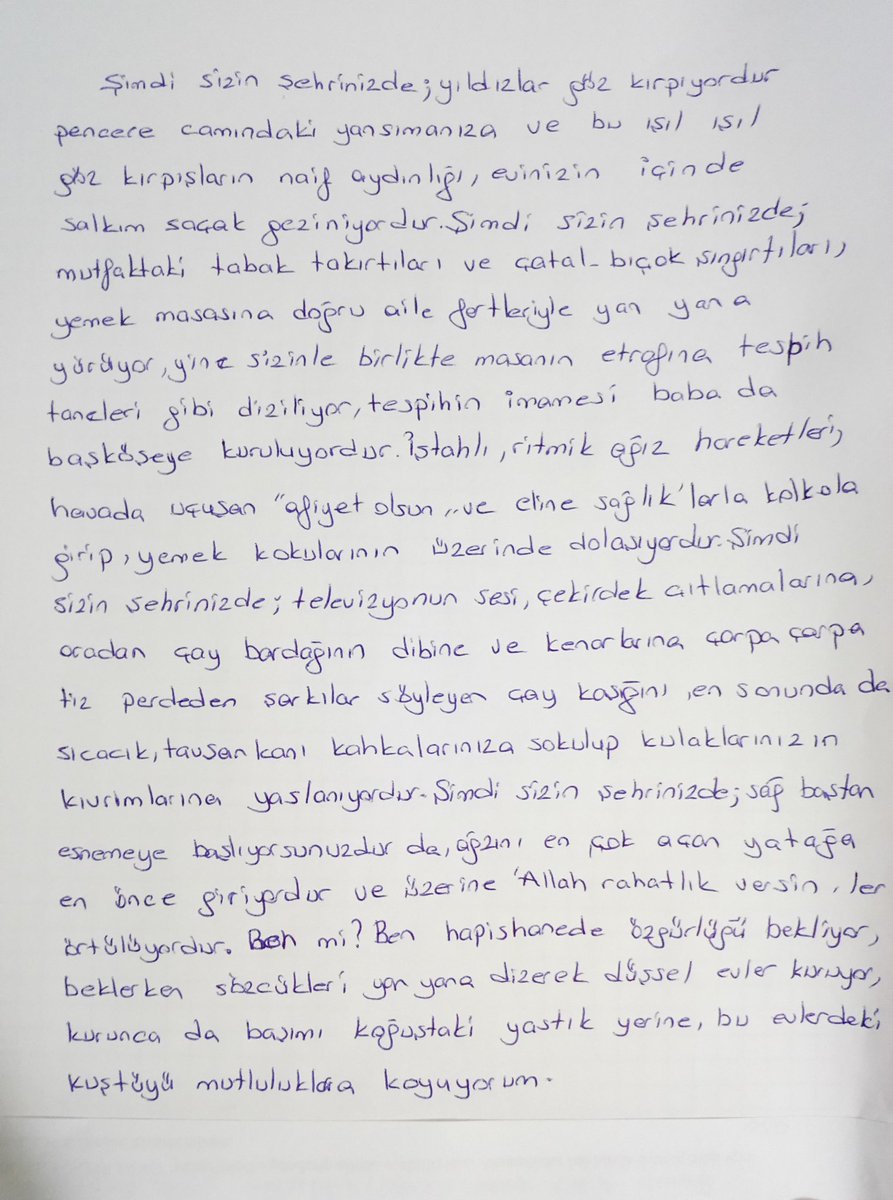 Şimdi sizin şehrinizde; yıldızlar göz kırpıyordur
pencere camındaki yansımanıza ve bu ışıl ışıl
göz kırpışların naif aydınlığı, evinizin içinde
salkım saçak geziniyordur. Şimdi sizin şehrinizde;
mutfaktaki tabak takırtıları ve çatal-bıçak şıngırtıları,
yemek masasına doğru aile fertleriyle yan yana
yürüyor, yine sizinle birlikte masanın etrafına tespih
taneleri gibi diziliyor, tespihin imamesi baba da
başköşeye kuruluyordur. İştahlı, ritmik ağız hareketleri,
havada uçuşan "afiyet olsun" ve eline sağlık'larla kolkola
girip, yemek kokularının üzerinde dolaşıyordur. Şimdi
sizin şehrinizde; televizyonun sesi, çekirdek çıtlamalarına,
oradan çay bardağının dibine ve kenarlarına çarpa çarpa
tiz perdeden şarkılar söyleyen çay kaşığını, en sonunda da
sıcacık, tavşan kanı kahkalarınıza sokulup kulaklarınızın
kıvrımlarına yaslanıyordur. Şimdi sizin şehrinizde; sağ baştan
esnemeye başlıyorsunuzdur da, ağzını en çok açan yatağa
en önce giriyordur ve üzerine 'Allah rahatlık versin' ler
örtülüyordur. Ben mi? Ben hapishanede özgürlüğü bekliyor,
beklerken sözcükleri yan yana dizerek düşsel evler kuruyor,
kurunca da başımı koğuştaki yastık yerine, bu evlerdeki
kuştüyü mutluluklara koyuyorum.